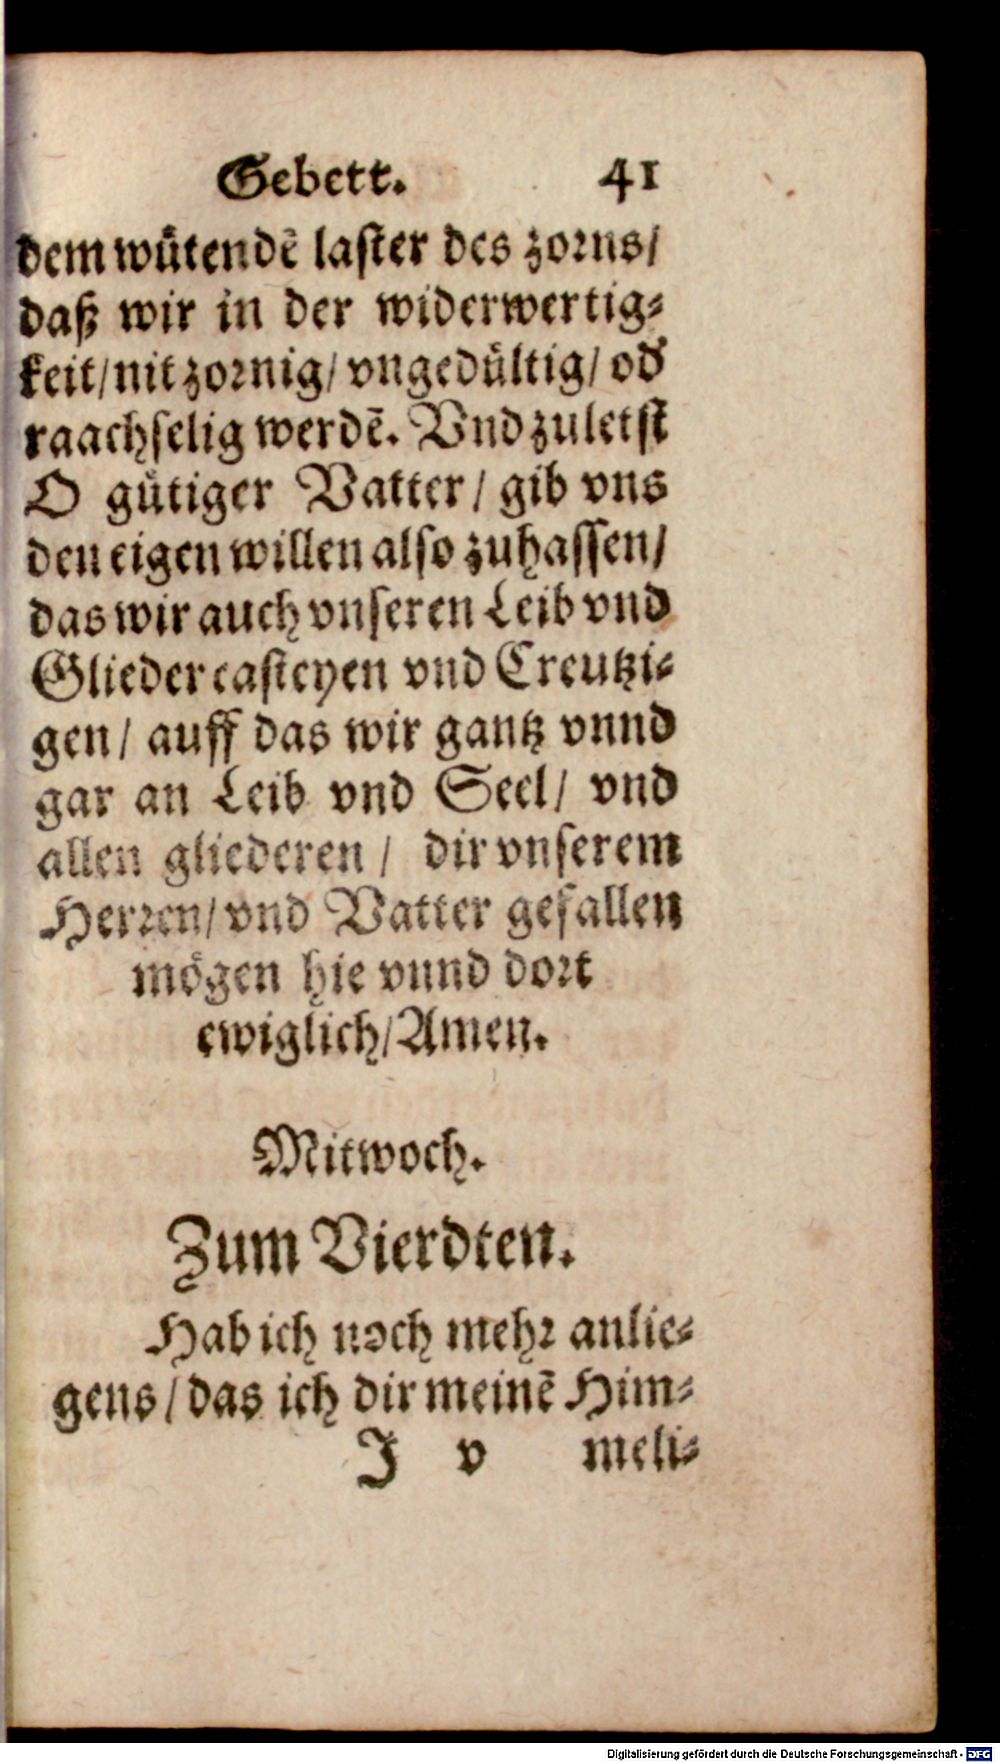 Gebett. 41
dem wütendẽ laster des zorns/
daß wir in der widerwertig-
keit/ nit zornig/ vngedültig/ od'
raachselig werdẽ. Vnd zuletst
O gütiger Vatter/ gib vns
den eigen willen also zuhassen/
das wir auch vnseren Leib vnd
Glieder casteyen vnd Creutzi-
gen/ auff das wir gantz vnnd
gar an Leib vnd Seel/ vnd
allen gliederen/ dir vnserem
Herren/ vnd Vatter gefallen
mögen hie vnnd dort
ewiglich/ Amen.
Mitwoch.
Zum Vierdten.
Hab ich noch mehr anlie-
gens/ das ich dir meinẽ Him-
J v meli-
Digitalisierung gefördert durch die Deutsche Forschungsgemeinschaft - DFG